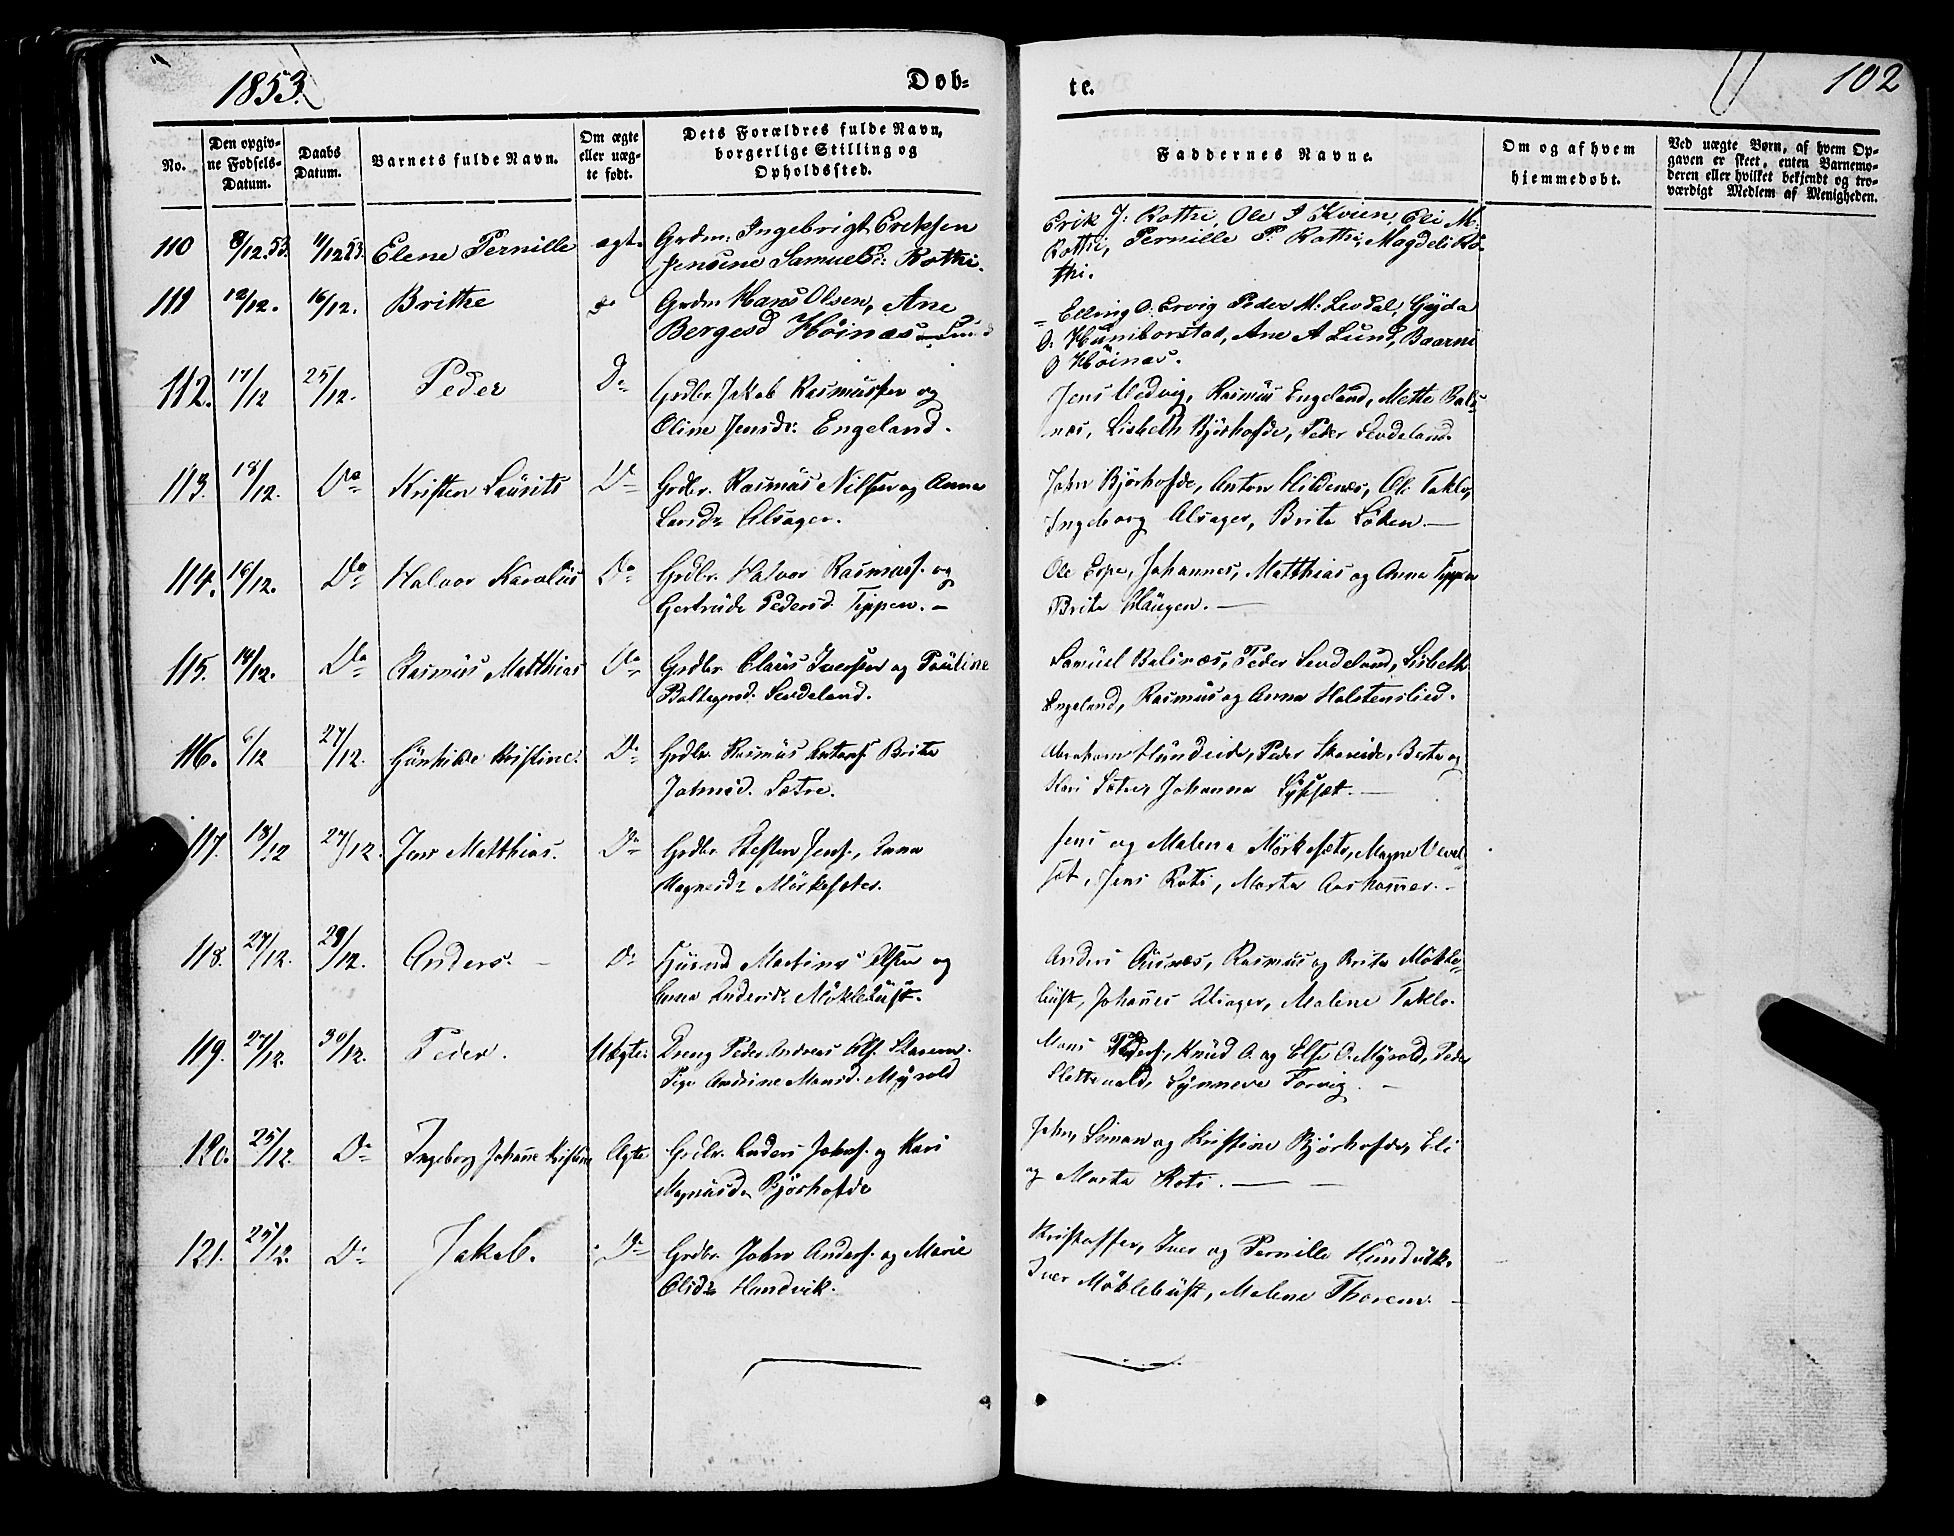 1853.
Døb-
te.
102
No.
Den opgiv-
ne Fødsels-
Datum.
Daabs
Datum.
Barnets fulde Navn.
Om ægte
eller uæg-
te født.
Dets Forældres fulde Navn,
borgerlige Stilling og
Opholdssted.
Faddernes Navne.
Om og af hvem
hjemmedøbt.
Ved uægte Børn, af hvem Op-
gaven er skeet, enten Barnemo-
deren eller hvilket bekjendt og tro-
værdigt Medlem af Menigheden.
110 8/12.53. 11/12.53. Elene Pernille ægte Grdm. Ingebrigt Eriksen
Jensine Samuelsd: Rothi.
Erik J: Rothi, Ole I Kvien, Eli M:
Rothi, Pernille P: Rothi, Magdeli Ro-
thi.
111 12/12. 16/12. Brithe Do Grdm Hans Olsen, Ane
Bergesd Höinæs
Elling O: Ervig Peder M: Levdal, Gjyda
O: Humborstad, Ane A Lund, Baarni
O Höinæs.
112. 17/12 25/12. Peder Do Grdbr. Jakob Rasmussen og
Oline Jensdr. Engeland.
Jens Nedvig, Rasmus Engeland, Mette Bals-
næs, Lisbeth Bjórhofde, Peder Levdeland.
113. 18/12. Do Kristen Laurits Do Grdbr. Rasmus Nilsen og Anna
Larsdr Alsager.
John Bjórhofde, Anton Hildenæs, Ole Taklo,
Ingeborg Alsager, Brite Löken.
114. 16/12. Do Halvor Karolus Do Grdbr. Halvor Rasmuss. og
Gertrude Pedersd. Tippen.
Ole Espe, Johannes, Matthias og Anna Tippen
Brite Haugen.
115. 14/12. Do Rasmus Matthias Do Grdbr. Claus Iversen og Pauline
Levdeland.
Samuel Balsnæs, Peder Levdeland, Lisbeth
Engeland, Rasmus og Anna Holstenslied.
116. 6/12 27/12. Gunhilde Kristine. Do Grdbr. Rasmus Antons. Brite
Johnsd. Sætre.
Abraham Hundeide, Peder Skareide, Berte og
Kari Sætre, Johanna
117. 18/12 27/12. Jens Matthias. Do Grdbr. Kristen Jens., Anna
Magnesdr Mörkesæter.
Jens og Malena Mörkesæter, Magne Vevel-
set, Jens Roti, Marta Aarhammer.
118. 27/12. 29/12. Anders. Do Husmd Martinus Olsen og
Anna Andersdr Möklebust.
Anders Ausnæs, Rasmus og Brite Mökle-
bust, Johannes Alsager, Malene Taklo.
119. 27/12. 30/12. Peder. Uægte. Dreng Peder Andreas Ols. Staven.
Pige Andrine Monsd. Myrold
Mons Peders., Knud O. og Else O. Myrold, Peder
Slettevold, Synneve Torvig.
120. 25/12. Do Ingeborg Johanne Kristine Ægte Grdbr. Anders Johns. og Kari
Magnusdr Bjórhofde
John, Simon og Kristine Bjórhofde, Eli
og Marta Roti.
121. 25/12. Do Jakob. Do Grdbr. John Anders. og Marie
Elidr Hundvik.
Kristoffer, Iver og Pernille Hundvik,
Iver Möklebust, Malene Thorem.